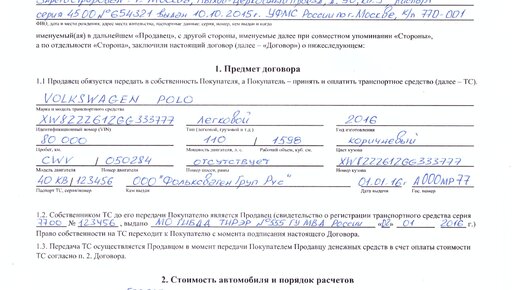 серия 45 00 № 654321 выдан 10.10.2015г. УФМС России по г. Москве, к/п 770-001
ФИО, дата и место рождения, адрес места жительства, паспортные данные: серия, номер, дата выдачи и кем выдан
именуемый(ая) в дальнейшем «Продавец», с другой стороны, именуемые далее при совместном упоминании «Стороны»,
а по отдельности «Сторона», заключили настоящий договор (далее – «Договор») о нижеследующем:
1. Предмет договора
1.1 Продавец обязуется передать в собственность Покупателя, а Покупатель – принять и оплатить транспортное средство (далее – ТС).
VOLKSWAGEN POLO
Марка и модель транспортного средства
XW8ZZZ61ZGG333777 Легковой 2016
Идентификационный номер (VIN) Тип (легковой, грузовой и т.д.) Год изготовления
80 000 110 / 1598 коричневый
Пробег, км. Мощность двигателя, л. с. Рабочий объем, куб. см. Цвет кузова
CWV / 050284 отсутствует XW8ZZZ61ZGG333777
Модель двигателя Номер двигателя Номер шасси, рамы Номер кузова
40 КВ / 123456 ООО "Фольксваген Груп Рус" 01.01.16г. А000МР77
Паспорт ТС, серия/номер Кем выдан Дата выдачи Гос. номер
1.2. Собственником ТС до его передачи Покупателю является Продавец (свидетельство о регистрации транспортного средства серия
7700 № 123456, выдано МО ГИБДД ТНРЭР №335 ГУ МВД России «02» 01 2016 г.)
Право собственности на ТС переходит к Покупателю с момента подписания настоящего Договора.
1.3. Передача ТС осуществляется Продавцом в момент передачи Покупателем Продавцу денежных средств в счет оплаты стоимости
ТС согласно п. 2. Договора.
2. Стоимость автомобиля и порядок расчетов